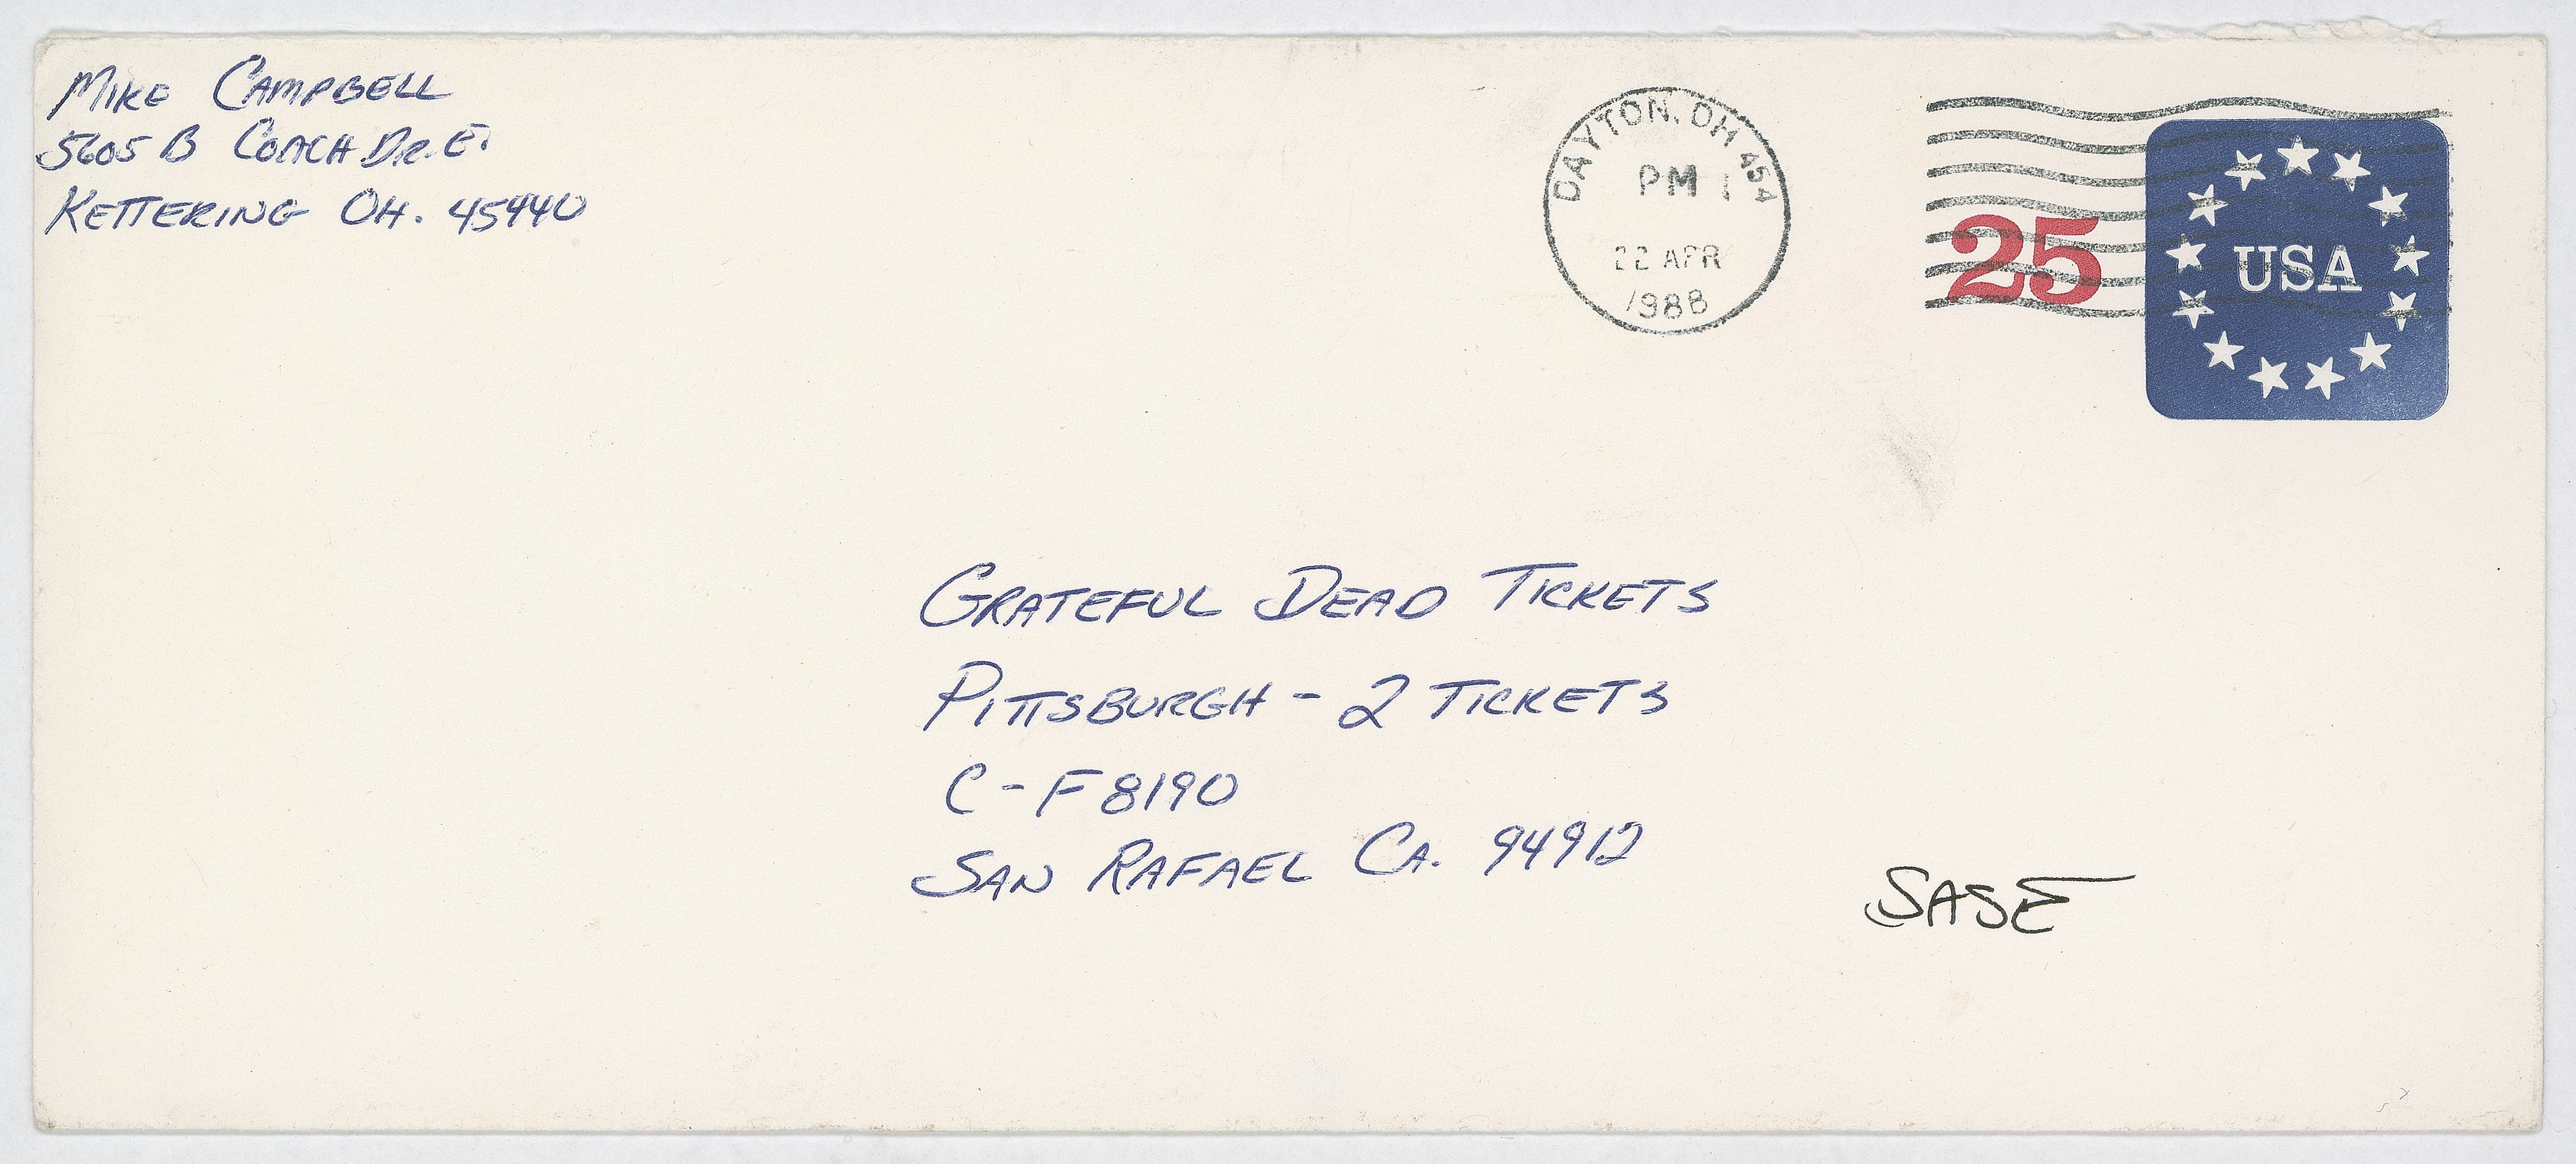 MIKE CAMPBELL
5605 B COACH DR. E.
KETTERING OH. 45440
DAYTON, OH 454
PM
22 APR
1988
25
USA
GRATEFUL DEAD TICKETS
PITTSBURGH - 2 TICKETS
C - F 8190
SAN RAFAEL CA. 94912
SASE